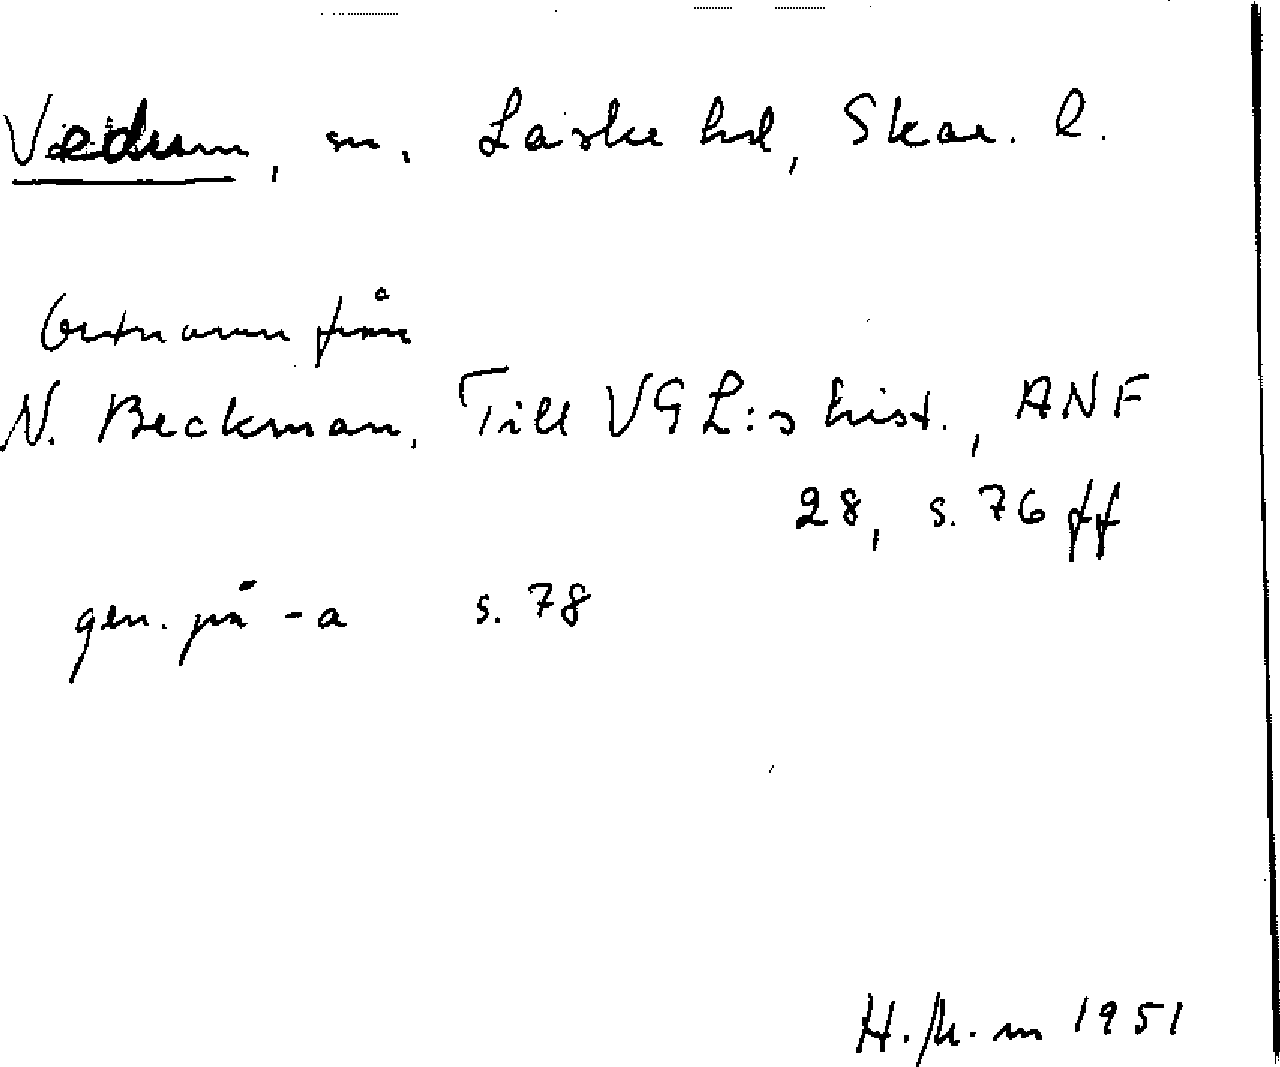 Vedum, sn, Laske hd, Skar. l.
Ortnamn från
N. Beckman, Till VGL:s hist., ANF
28, s. 76 ff
gen. på -a s. 78
1951